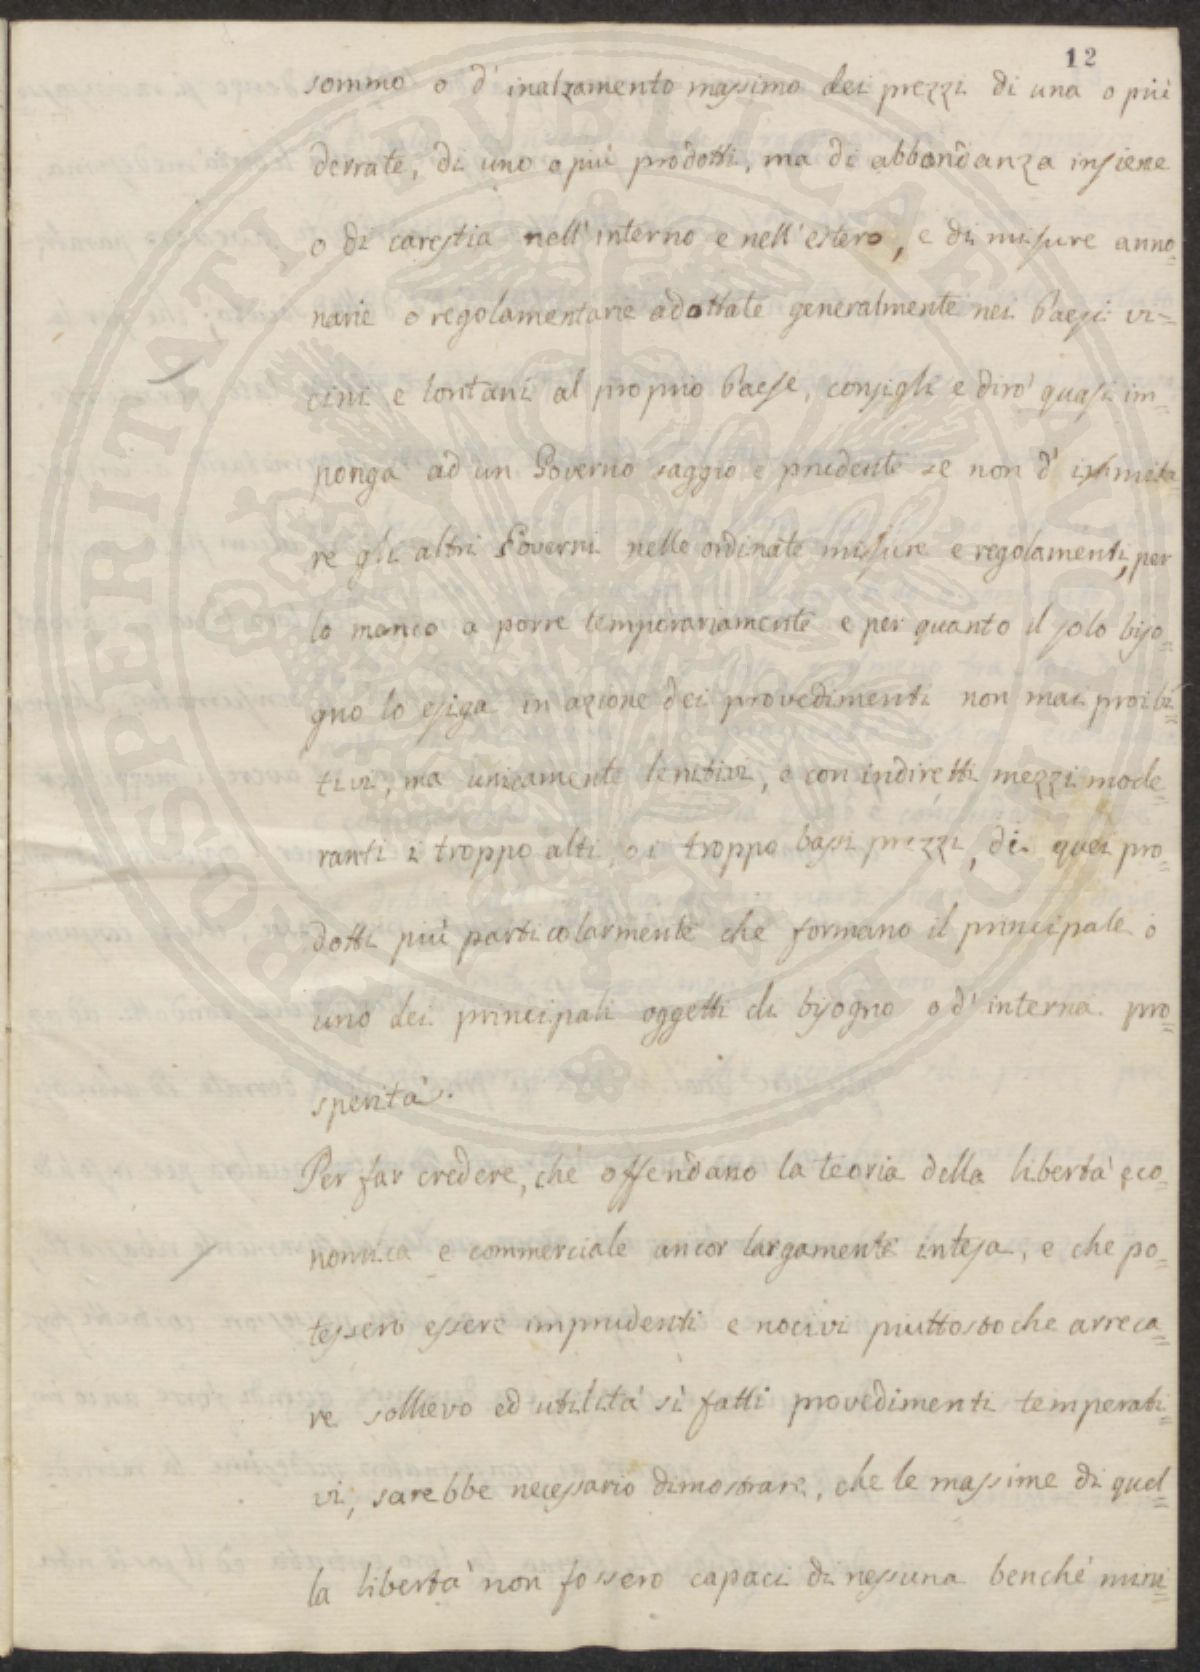 12
sommo o d'inalzamento massimo dei prezzi di una o più
derrate, di uno o più prodotti, ma di abbondanza insieme
o di carestia nell'interno e nell'estero, e di misure anno=
narie o regolamentarie adottate generalmente nei Paesi vi=
cini e lontani al proprio Paese, consigli e dirò quasi im=
ponga ad un Governo saggio e prudente se non d' immita=
re gli altri Governi nelle ordinate missure e regolamenti, per
lo manco a porre temporariamente e per quanto il solo biso=
gno lo esiga in azione dei provedimenti non mai proibi=
tivi, ma unicamente lenitivi, e con indiretti mezzi mode=
ranti i troppo alti, o i troppo bassi prezzi, di quei pro=
dotti più particolarmente che formano il principale o
uno dei principali oggetti di bisogno o d'interna pro=
sperità.
Per far credere, che offendano la teoria della libertà eco=
nomica e commerciale ancor largamente intesa, e che po=
tessero essere imprudenti e nocivi piuttosto che arreca=
re sollievo ed utilità sì fatti provedimenti temperati=
vi, sarebbe necessario dimostrare, che le massime di quel=
la libertà non fossero capaci di nessuna benché mini=
PROSPERITATI PVBLICAE AVGENDAE